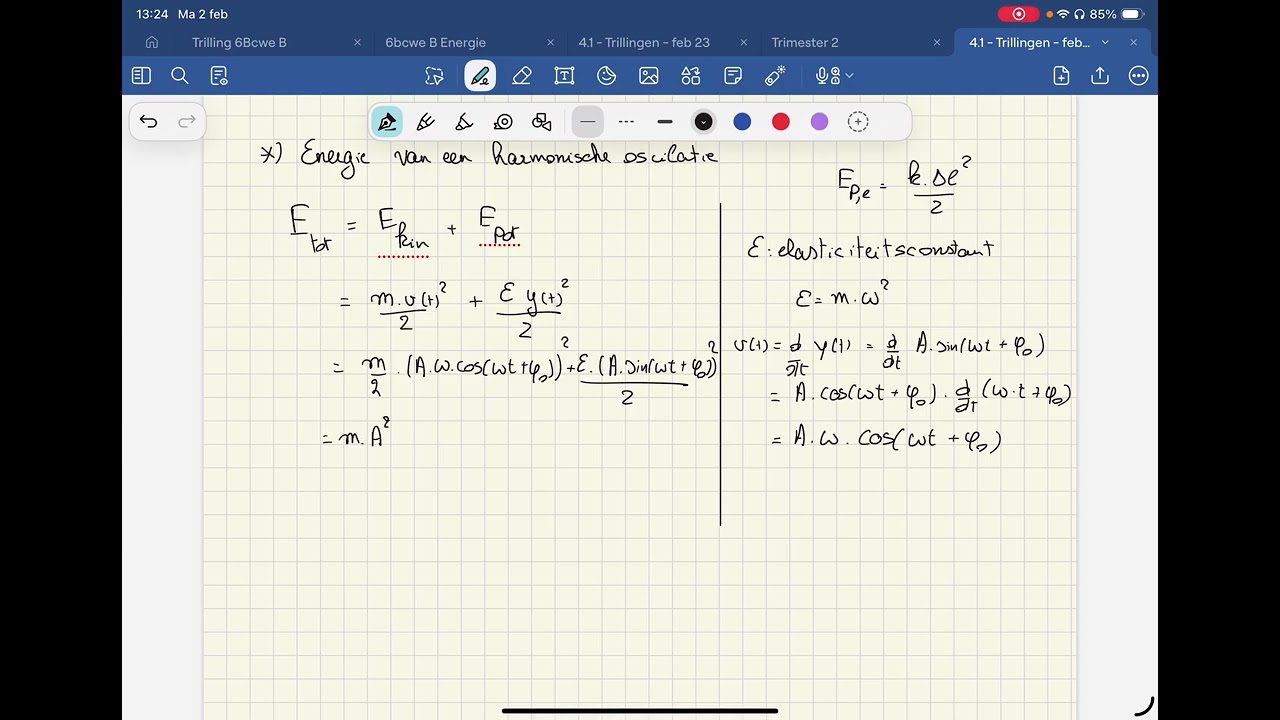 13:24 Ma 2 feb 85%
Trilling 6Bcwe B
6bcwe B Energie
4.1 - Trillingen - feb 23
Trimester 2
4.1 - Trillingen - feb...
*) Energie van een harmonische oscilatie
E_tot = E_kin + E_pot
= m.v(t)²/2 + ε y(t)²/2
= m/2 . (A.ω.cos(ωt+φ₀))² + ε.(A.sin(ωt+φ₀))²/2
= m.A²
E_p,e = k.Δl²/2
ε: elasticiteitsconstant
ε = m.ω²
v(t) = d/dt y(t) = d/dt A.sin(ωt + φ₀)
= A.cos(ωt + φ₀) . d/dt (ω.t + φ₀)
= A.ω. cos(ωt + φ₀)